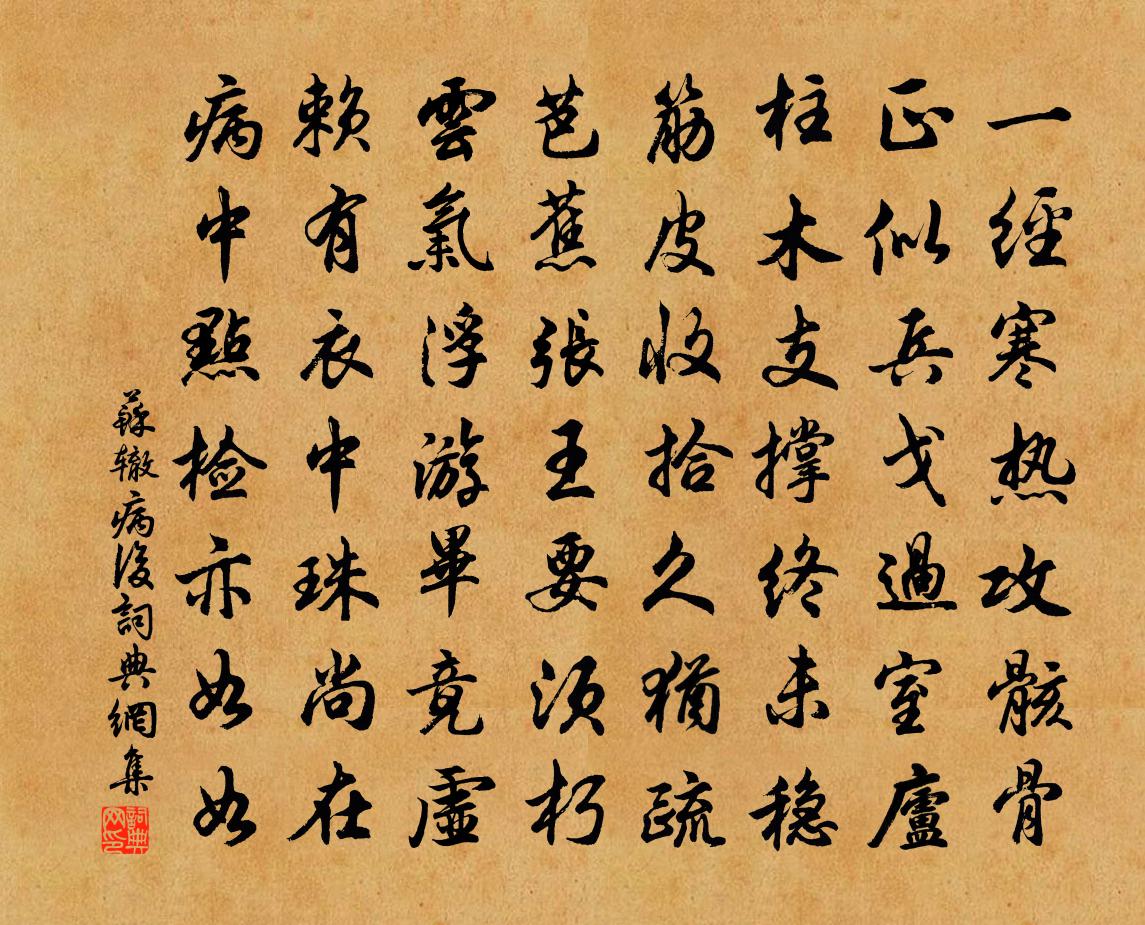 一經寒热攻骸骨
正似兵戈過室廬
柱木支撑終未穏
筋皮收拾久猶疏
芭蕉張王要須朽
雲氣浮游畢竟虛
賴有衣中珠尚在
病中點檢亦如如
蘇辙病後詞典網集
詞典网印